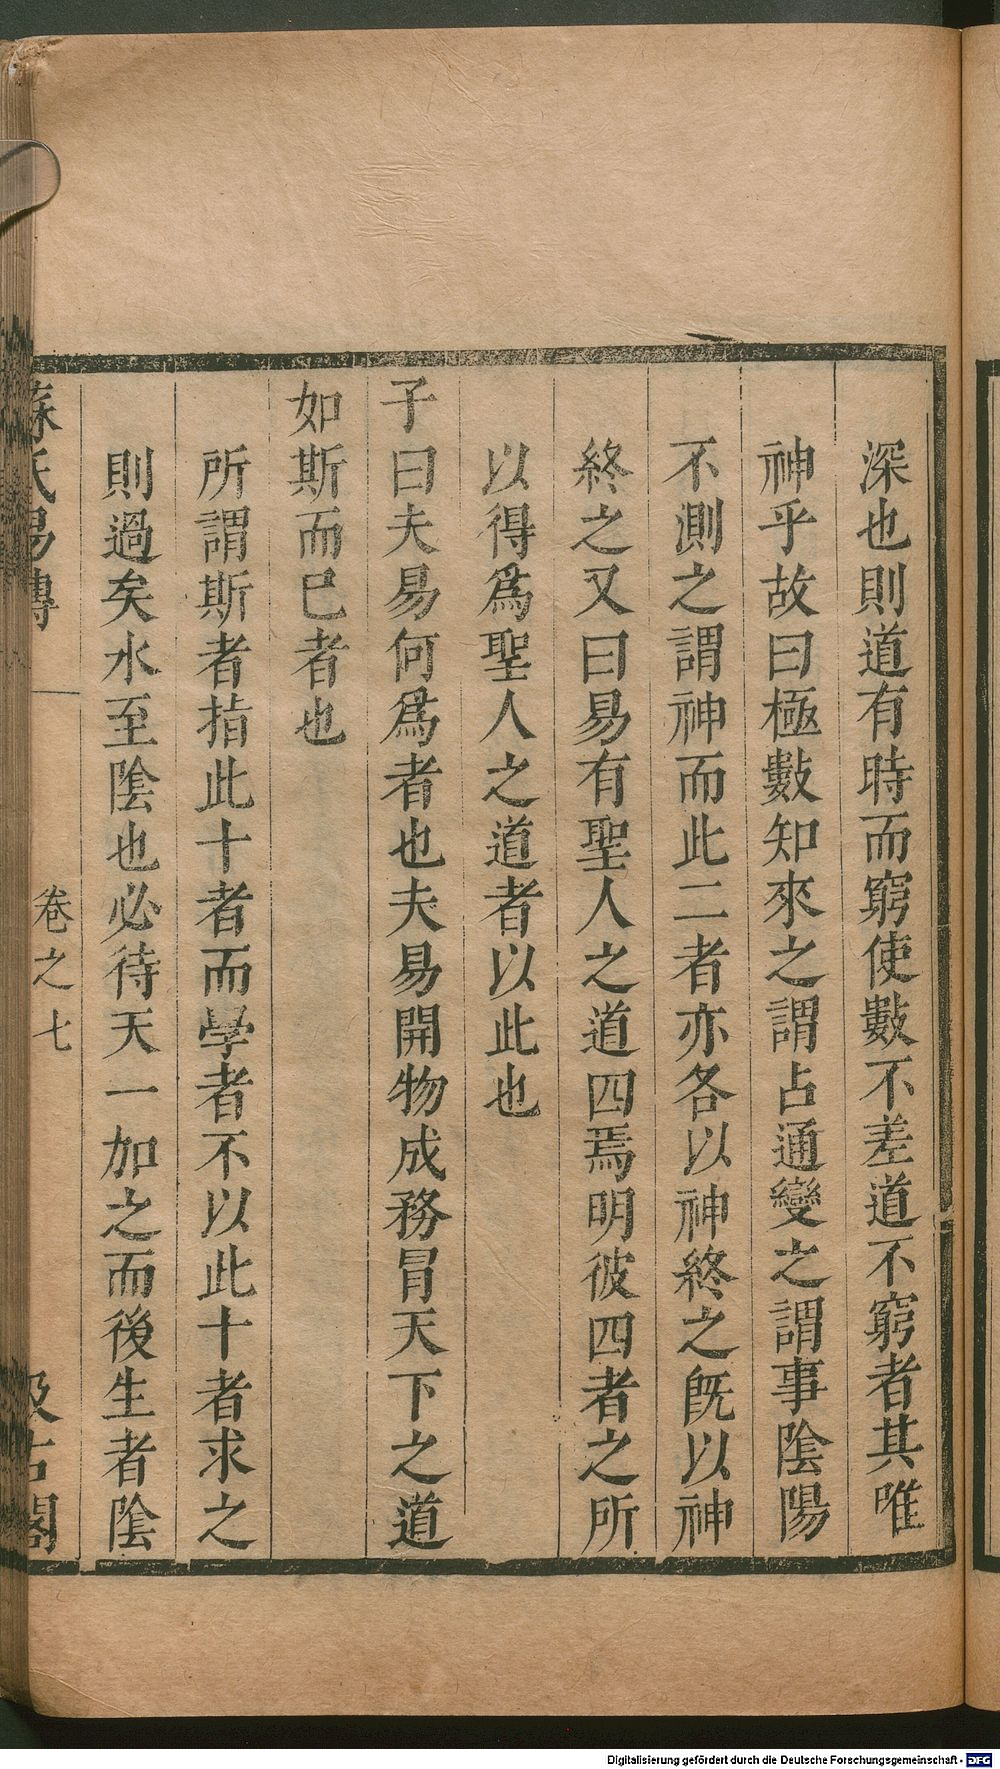 深也則道有時而窮使數不差道不窮者其唯
神乎故曰極數知來之謂占通變之謂事陰陽
不測之謂神而此二者亦各以神終之旣以神
終之又曰易有聖人之道四焉明彼四者之所
以得爲聖人之道者以此也
子曰夫易何爲者也夫易開物成務冒天下之道
如斯而已者也
所謂斯者指此十者而學者不以此十者求之
則過矣水至陰也必待天一加之而後生者陰
蘇氏易傳
卷之七
汲古閣
Digitalisierung gefördert durch die Deutsche Forschungsgemeinschaft - DFG